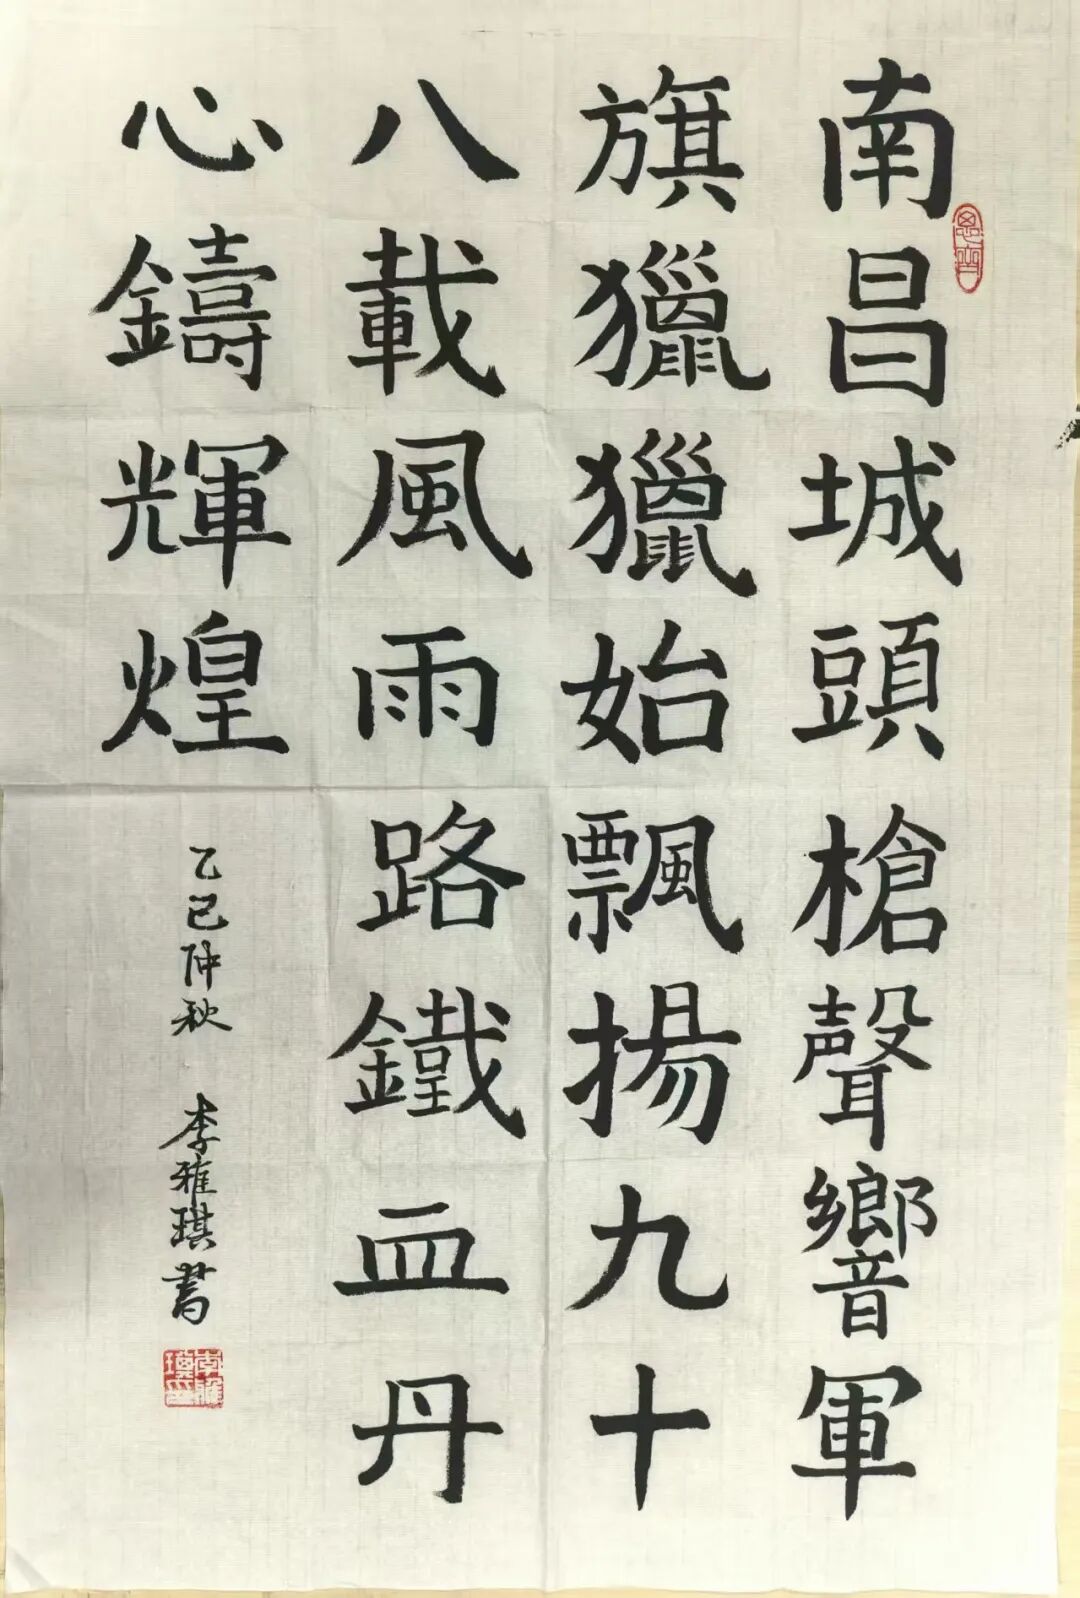 南昌城頭槍聲響軍
旗獵獵始飄揚九十
八載風雨路鐵血丹
心鑄輝煌
乙巳仲秋 李雅琪書
思齊
李雅琪印